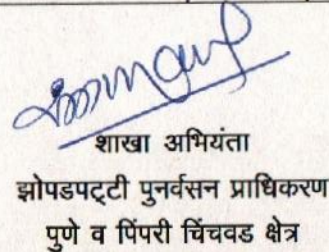 शाखा अभियंता
झोपडपट्टी पुनर्वसन प्राधिकरण
पुणे व पिंपरी चिंचवड क्षेत्र